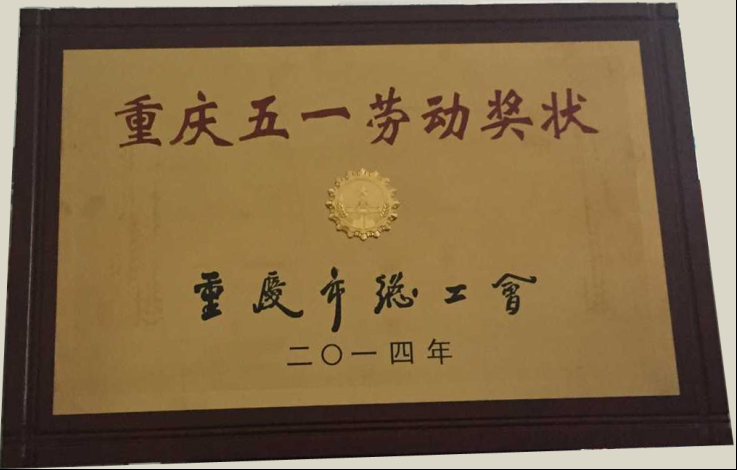 重庆五一劳动奖状
重慶市總工會
二〇一四年